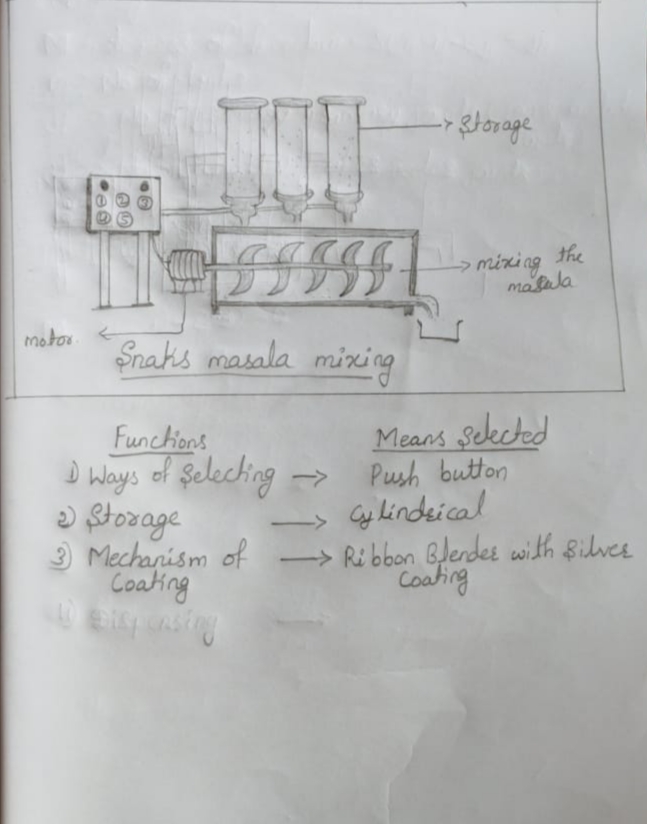 Storage
1 2 3
4 5
mixing the
masala
motor.
Snaks masala mixing
Functions Means Selected
1) Ways of Selecting → Push button
2) Storage → Cylindrical
3) Mechanism of → Ribbon Blender with Silver
Coating Coating
4) Dispensing